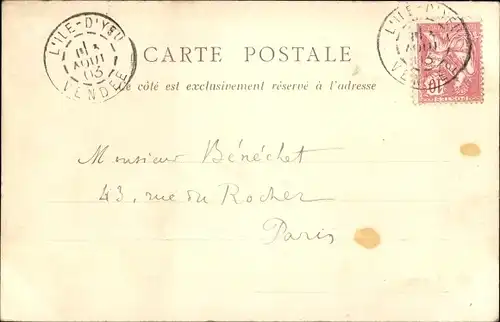 L'ILE-D'YEU
AOUT
03
VENDÉE
CARTE POSTALE
Ce côté est exclusivement réservé à l'adresse
L'ILE-D'YEU
VENDÉE
10
Monsieur Bénéchet
43, rue du Rocher
Paris